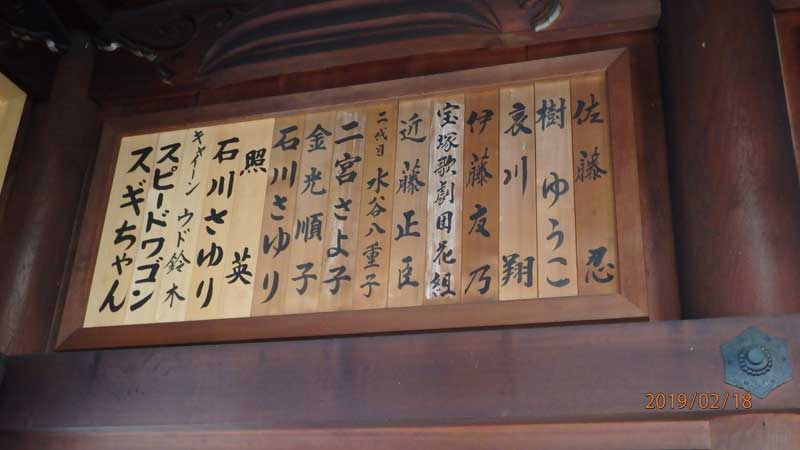 佐藤忍
樹ゆうこ
哀川翔
伊藤友乃
宝塚歌劇団花組
近藤正臣
二代目 水谷八重子
二宮さよ子
金光順子
石川さゆり
照英
石川さゆり
キャイーン ウド鈴木
スピードワゴン
スギちゃん
2019/02/18